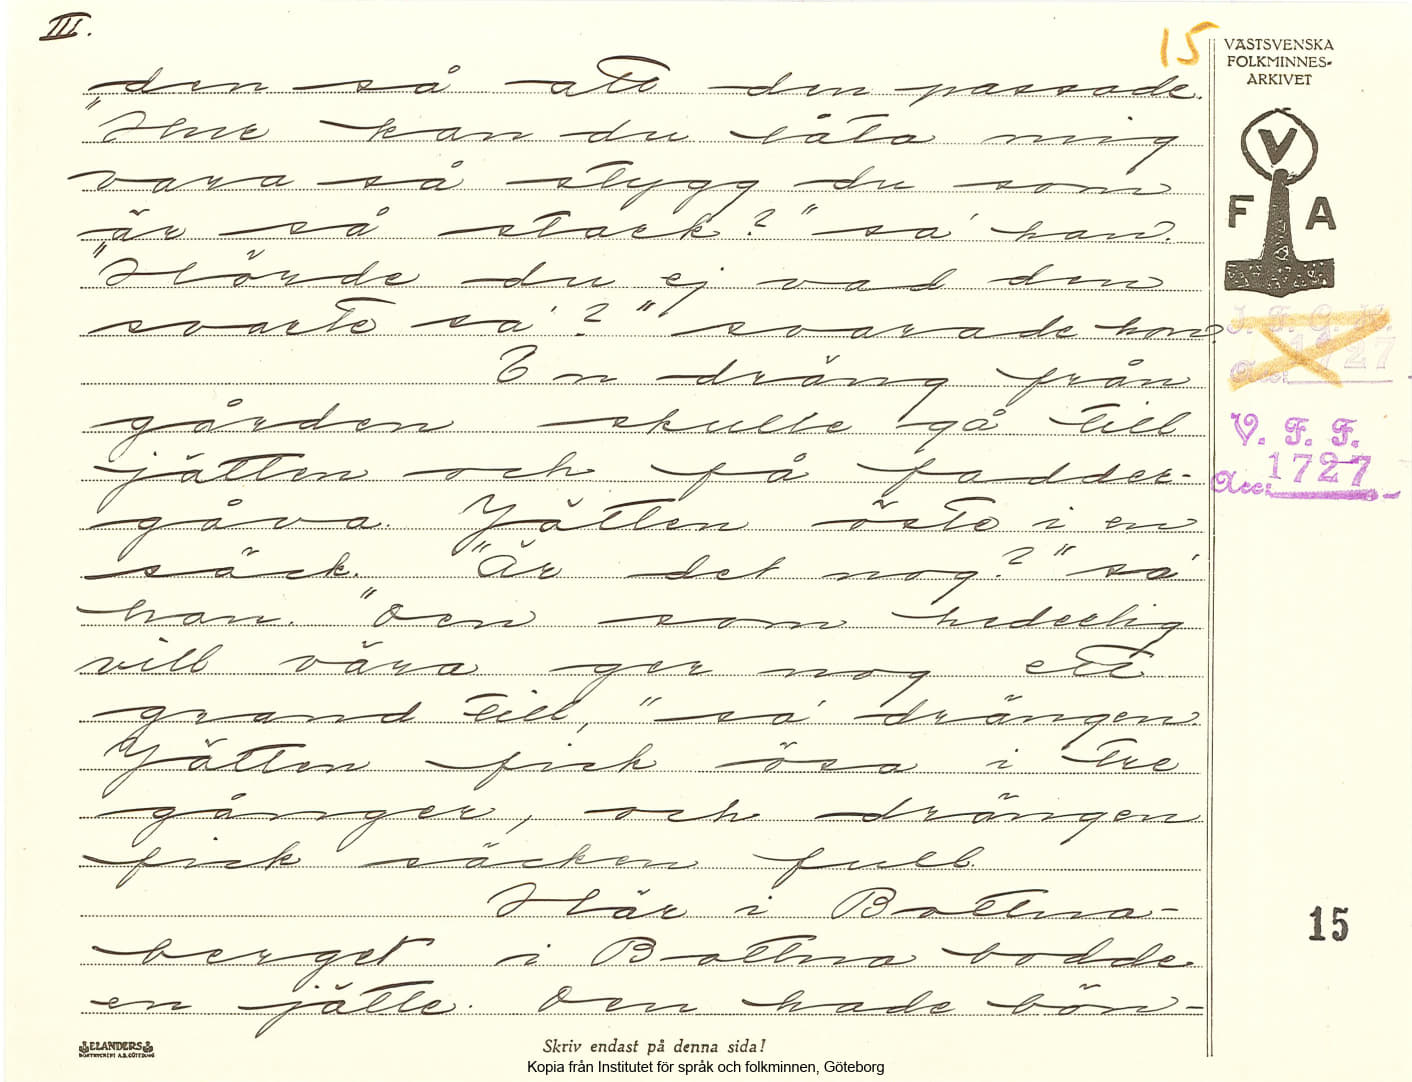 III.
15
VÄSTSVENSKA
FOLKMINNES-
ARKIVET
V
F A
den så att den passade.
"Hur kan du låta mig
vara så stygg du som
är så stark?" sa' han.
"Hörde du ej vad den
svarte sa'?" svarade hon.
En dräng från
gården skulle gå till
jätten och få fadder-
gåva. Jätten öste i en
säck. "Är det nog?" sa'
han. "Den som hederlig
vill vära ger nog ett
grand till," sa' drängen.
Jätten fick ösa i tre
gånger, och drängen
fick säcken full.
Här i Bottna-
berget i Bottna bodde
en jätte. Den hade bön-
V. F. F.
Acc: 1727
15
ELANDERS
BOKTRYCKERI A.B. GÖTEBORG
Skriv endast på denna sida!
Kopia från Institutet för språk och folkminnen, Göteborg